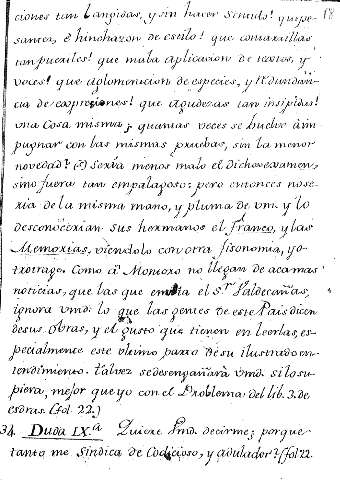 ciones tan langidas, y sin hacer sentido! que pe-
santez, è hinchazon de estilo! que contraxillas 18
tan pueriles! que mala aplicacion de textos, y
voces! que aglomeracion de especies, y redundan-
cia de expresiones! que agudezas tan insipidas!
una cosa misma; quantas veces se buelve à im-
pugnar con las mismas pruebas, sin la menor
novedad? Sería menos malo el dicho examen,
sino fuera tan empalagoso: pero entonces no se-
ría de la misma mano, y pluma de vm. y lo
desconocerian sus hermanos el franco, y las
Memorias, viendolo con otra fisonomia, y o-
tro trage. Como à Monoxo no llegan de acà mas
noticias, que las que embia el Sr. Valdecañas,
ignora vmd. lo que las gentes de este Pais dicen
de sus obras, y el gusto que tienen en leerlas, es-
pecialmente este ultimo parto de su ilustrado en-
tendimiento. Talvez se desengañarà vmd. si lo su-
piera, mejor que yo con el Problema del lib. 3. de
esdras. (fol. 22.)
34. Duda IX.a Quiere Vmd. decirme; porque
tanto me sindica de Codicioso, y adulador? (fol 22.